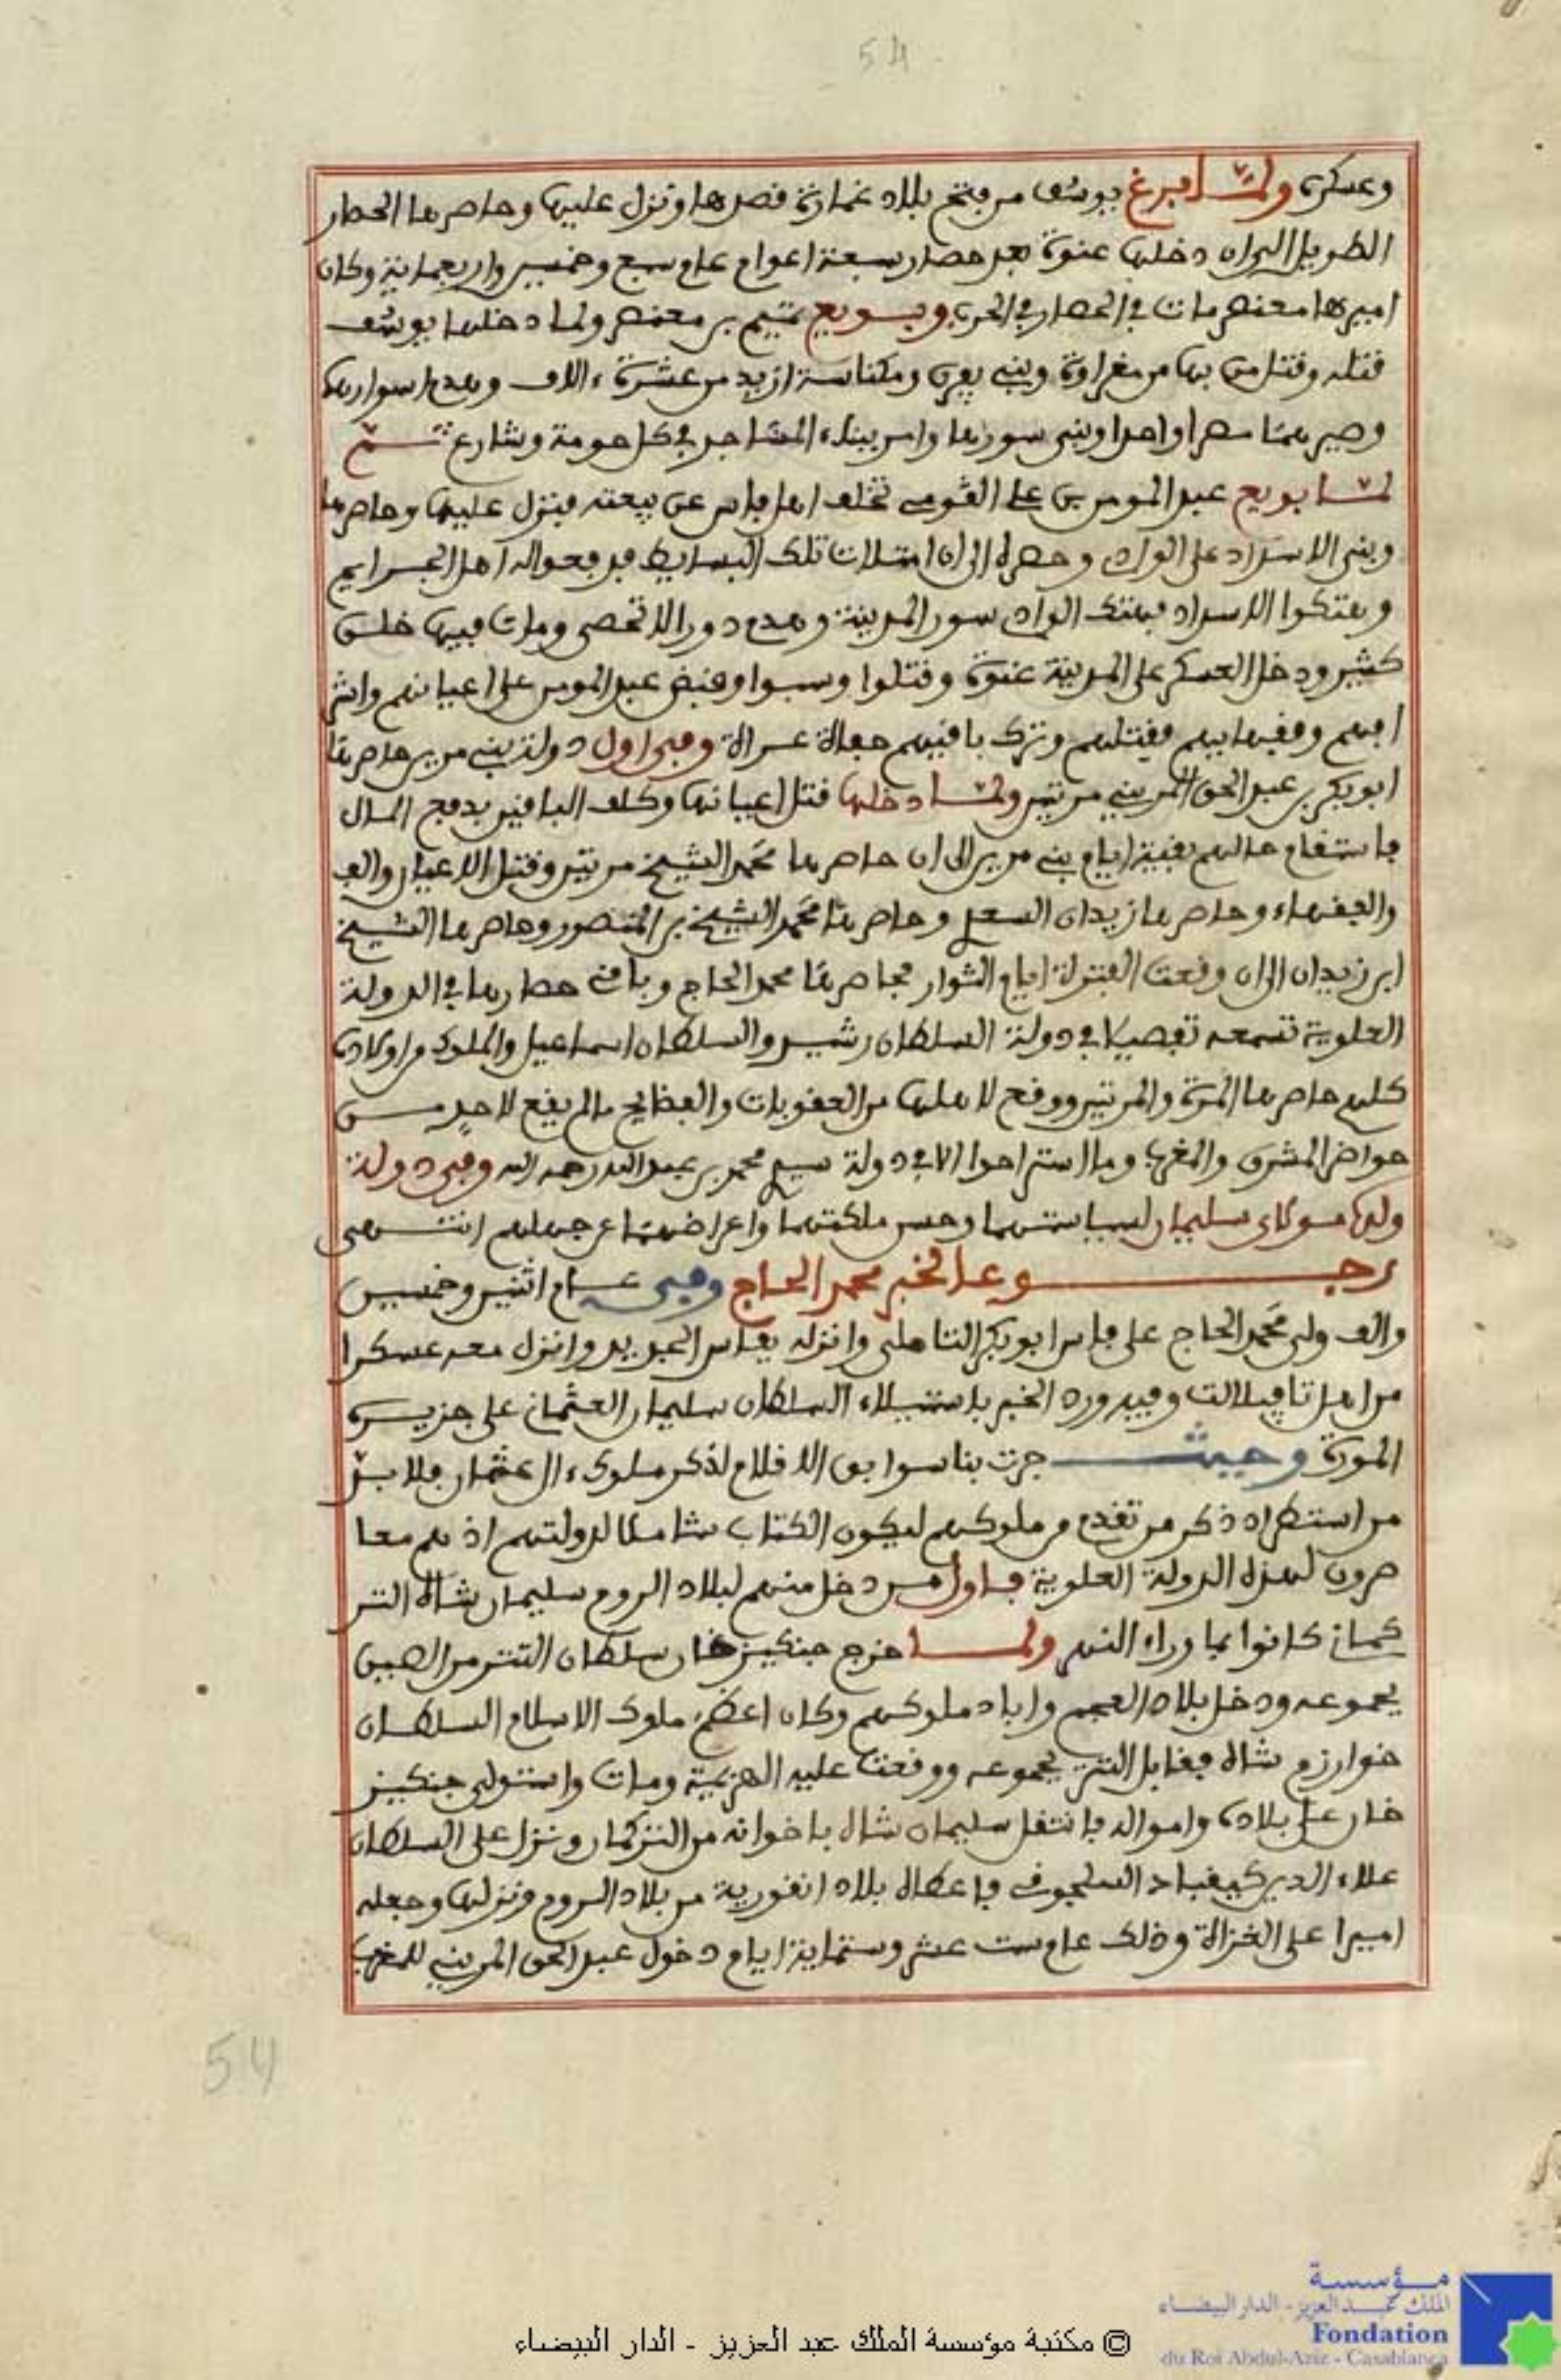 54
وعسكره ولما فرغ يوسف من فتح بلاد غمارة قصدها ونزل عليها وحاصرها الحصار
الطويل الى ان دخلها عنوة بعد حصار سبعة اعوام عام سبع وخمسين واربعماية وكان
اميرها معنصر مات في الحصار في الحرب وبويع تميم بن معنصر ولما دخلها يوسف
قتله وقتل من بها من مغراوة وبني يفرن ومكناسة ازيد من عشرة ءالاف وهدم اسوارها
وصيرهما مصرا واحدا وبنى سورها وامر ببناء المساجد في كل حومة وشارع ثم
لما بويع عبد المومن بن علي القومي تخلف اهل فاس عن بيعته فنزل عليها وحاصرها
وبنى الاسداد على الوادي وحصره الى ان امتلات تلك البسايط
وهتكوا الاسداد فهتك الوادي سور المدينة وهدم دورا لا تحصى ومات فيها خلق
كثير ودخل العسكر على المدينة عنوة وقتلوا وسبوا وقبض عبد المومن على اعيانهم واشر
افهم وفقهايهم فقتلهم وترك باقيهم حفاة عراة وفي اول دولة بني مرين حاصرها
ابو بكر بن عبد الحق المريني مرتين ولما دخلها قتل اعيانها وكلف الباقين بدفع المال
فاستقام حالهم بقية ايام بني مرين الى ان حاصرها محمد الشيخ مرتين وقتل الاعيان
والفقهاء وحاصرها زيدان السعدي وحاصرها محمد الشيخ بن المنصور وحاصرها الشيخ
ابن زيدان الى ان وقعت الفترة ايام الثوار فحاصرها محمد الحاج وباقي حصارها في الدولة
العلوية تسمعه تفصيلا في دولة السلطان رشيد والسلطان اسماعيل والملوك من اولاده
كلهم حاصرها المرة والمرتين ووقع لاهلها من العقوبات والفظايع ما لم يقع لاحد من
حواضر المشرق والمغرب وما استراحوا الا في دولة سيدي محمد بن عبد الله رحمه الله وفي دولة
ولده مولاي سليمان لسياستهما وحسن ملكتهما واعراضهما عن جهلهم انتهى
رجوعا لخبر محمد الحاج وفي عام اثنين وخمسين
والف ولى محمد الحاج على فاس ابو بكر التاملي وانزله بفاس الجديد وانزل معه عسكرا
من اهل تافيلالت وفيه ورد الخبر باستيلاء السلطان سليمان العثماني على جزيرة
المورة وحيث جرت بنا سوابق الاقلام لذكر ملوك ءال عثمان فلا بد
من استطراد ذكر من تقدم من ملوكهم ليكون الكتاب شاملا لدولتهم اذ هم معا
صرون لهذه الدولة العلوية فاول من دخل منهم لبلاد الروم سليمان شاه التر
كماني كانوا بما وراء النهر ولما خرج جنكيز خان سلطان التتر من الصين
بجموعه ودخل بلاد العجم واباد ملوكهم وكان اعظم ملوك الاسلام السلطان
خوارزم شاه فقابل التتر بجموعه ووقعت عليه الهزيمة ومات واستولى جنكيز
خان على بلاده وامواله فانتقل سليمان شاه باخوانه من التركمان ونزل على السلطان
علاء الدين كيقباد السلجوقي فاعطاه بلاد انقورية من بلاد الروم ونزلها وجعله
اميرا على الغزاة وذلك عام ست عشر وستماية ايام دخول عبد الحق المريني للمغرب
54
مؤسسة
الملك عبد العزيز - الدار البيضاء
Fondation
du Roi Abdul-Aziz - Casablanca
© مكتبة مؤسسة الملك عبد العزيز - الدار البيضاء